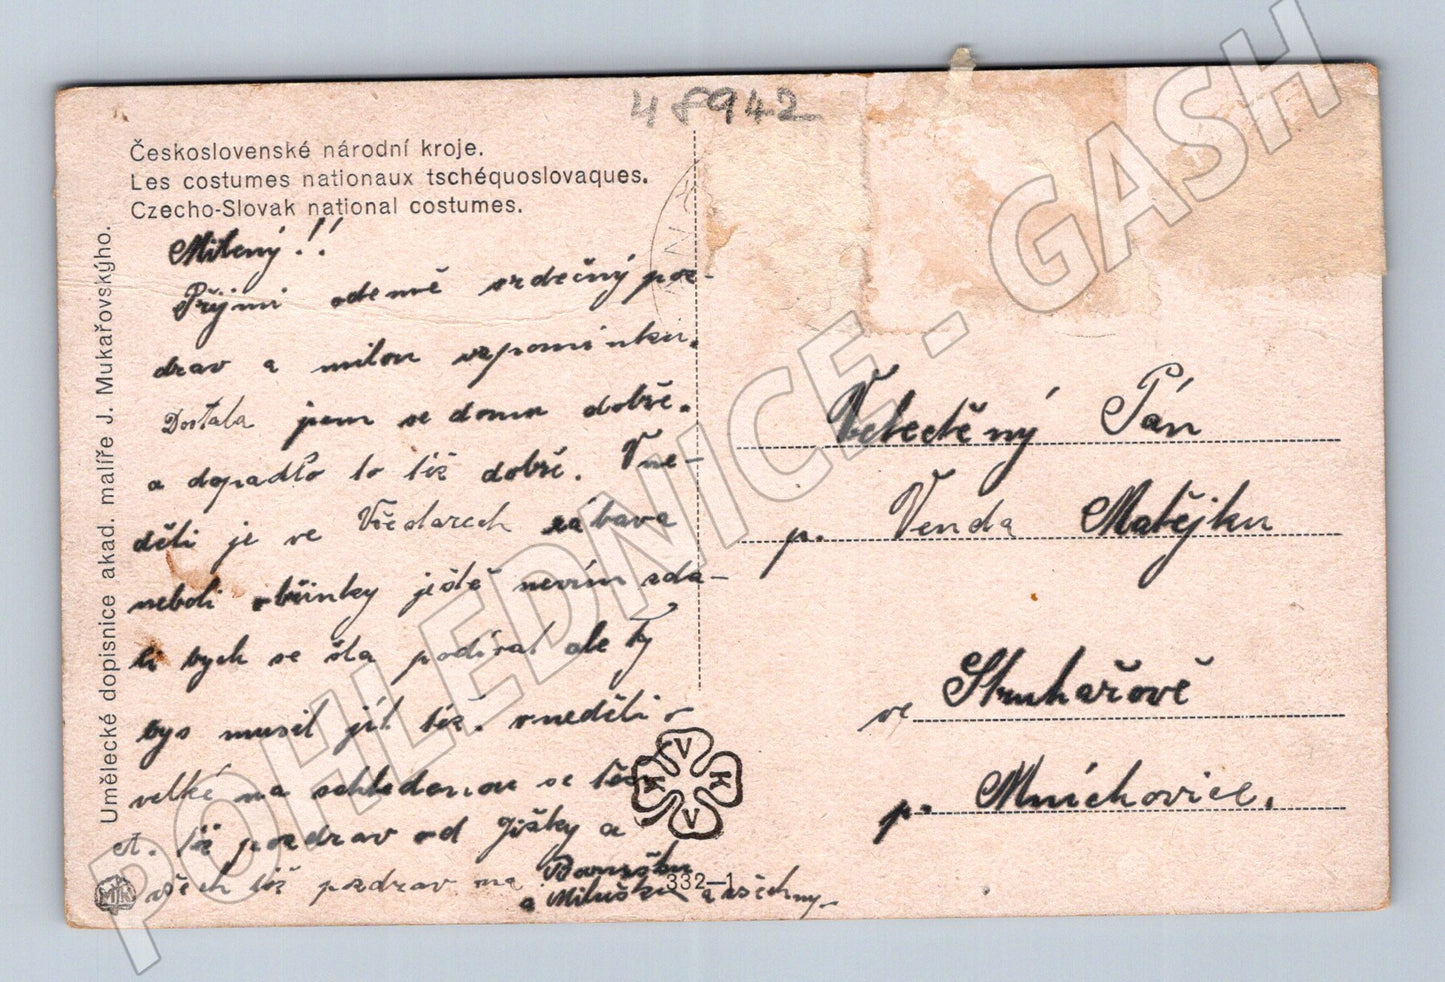 48942
Československé národní kroje.
Les costumes nationaux tschéquoslovaques.
Czecho-Slovak national costumes.
Umělecké dopisnice akad. malíře J. Mukařovskýho.
Milený!!
Přijmi odemě srdečný poz-
drav a milou vzpomínku.
Dostala jsem se domu dobře.
a dopadlo to též dobře. V ne-
děli je ve Všedarech zábava
neboli obžinky ještě nevím zda-
li bych se šla podívat ale Ty
bys musil jít též. v neděli
velké na schledanou se těší
et. též pozdrav od Jišky a
všech též pozdrav na Barušku
a Milušku a všechny.
Velectěný Pán
p. Venda Matějku
ve Struhařově
p. Mnichovice.
V K V K
332-1
MK
POHLEDNICE - GASH